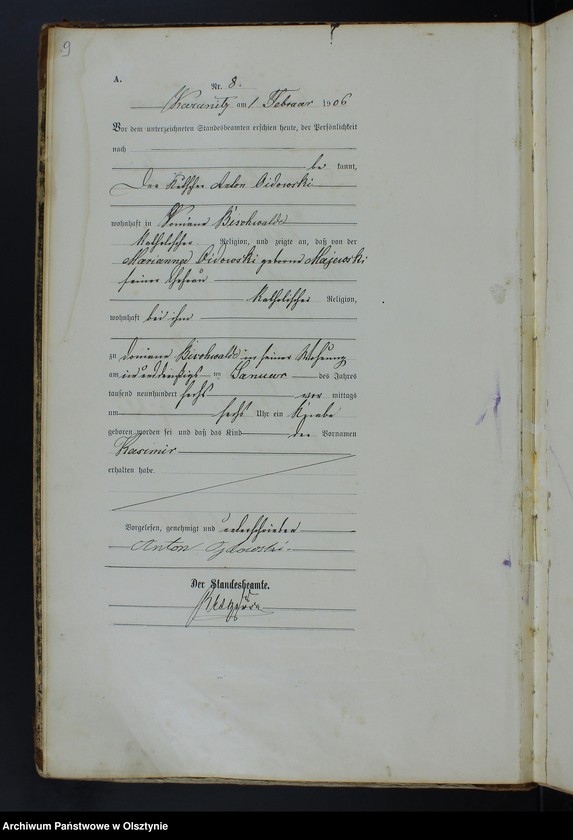 9
A.
Nr. 8.
am 1 Februar 1906
Vor dem unterzeichneten Standesbeamten erschien heute, der Persönlichkeit
nach
be kannt,
Der Kutscher Anton
wohnhaft in
katholischer Religion, und zeigte an, daß von der
Marianna geborene Majewski
seiner Ehefrau
katholischer Religion,
wohnhaft bei ihm
zu in seiner Wohnung
am Januar des Jahres
tausend neunhundert sechs vor mittags
um sechs Uhr ein Knabe
geboren worden sei und daß das Kind den Vornamen
Kasimir
erhalten habe.
Vorgelesen, genehmigt und unterschrieben
Anton
Der Standesbeamte.
Archiwum Państwowe w Olsztynie